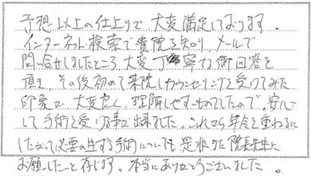 予想以上の仕上りで、大変満足しております。
インターネット検索で貴院を知り、メールで
問合せしましたところ大変丁寧な御回答を
頂き、その後初めて来院しカウンセリングを受けてみた
印象も、大変良く、理解しやすいものでしたので、安心
して手術を受ける事が出来ました。これから年令を重ねるに
したがって必要が生ずる手術についても是非共院長先生に
お願いしたいと存じます。本当にありがとうございました